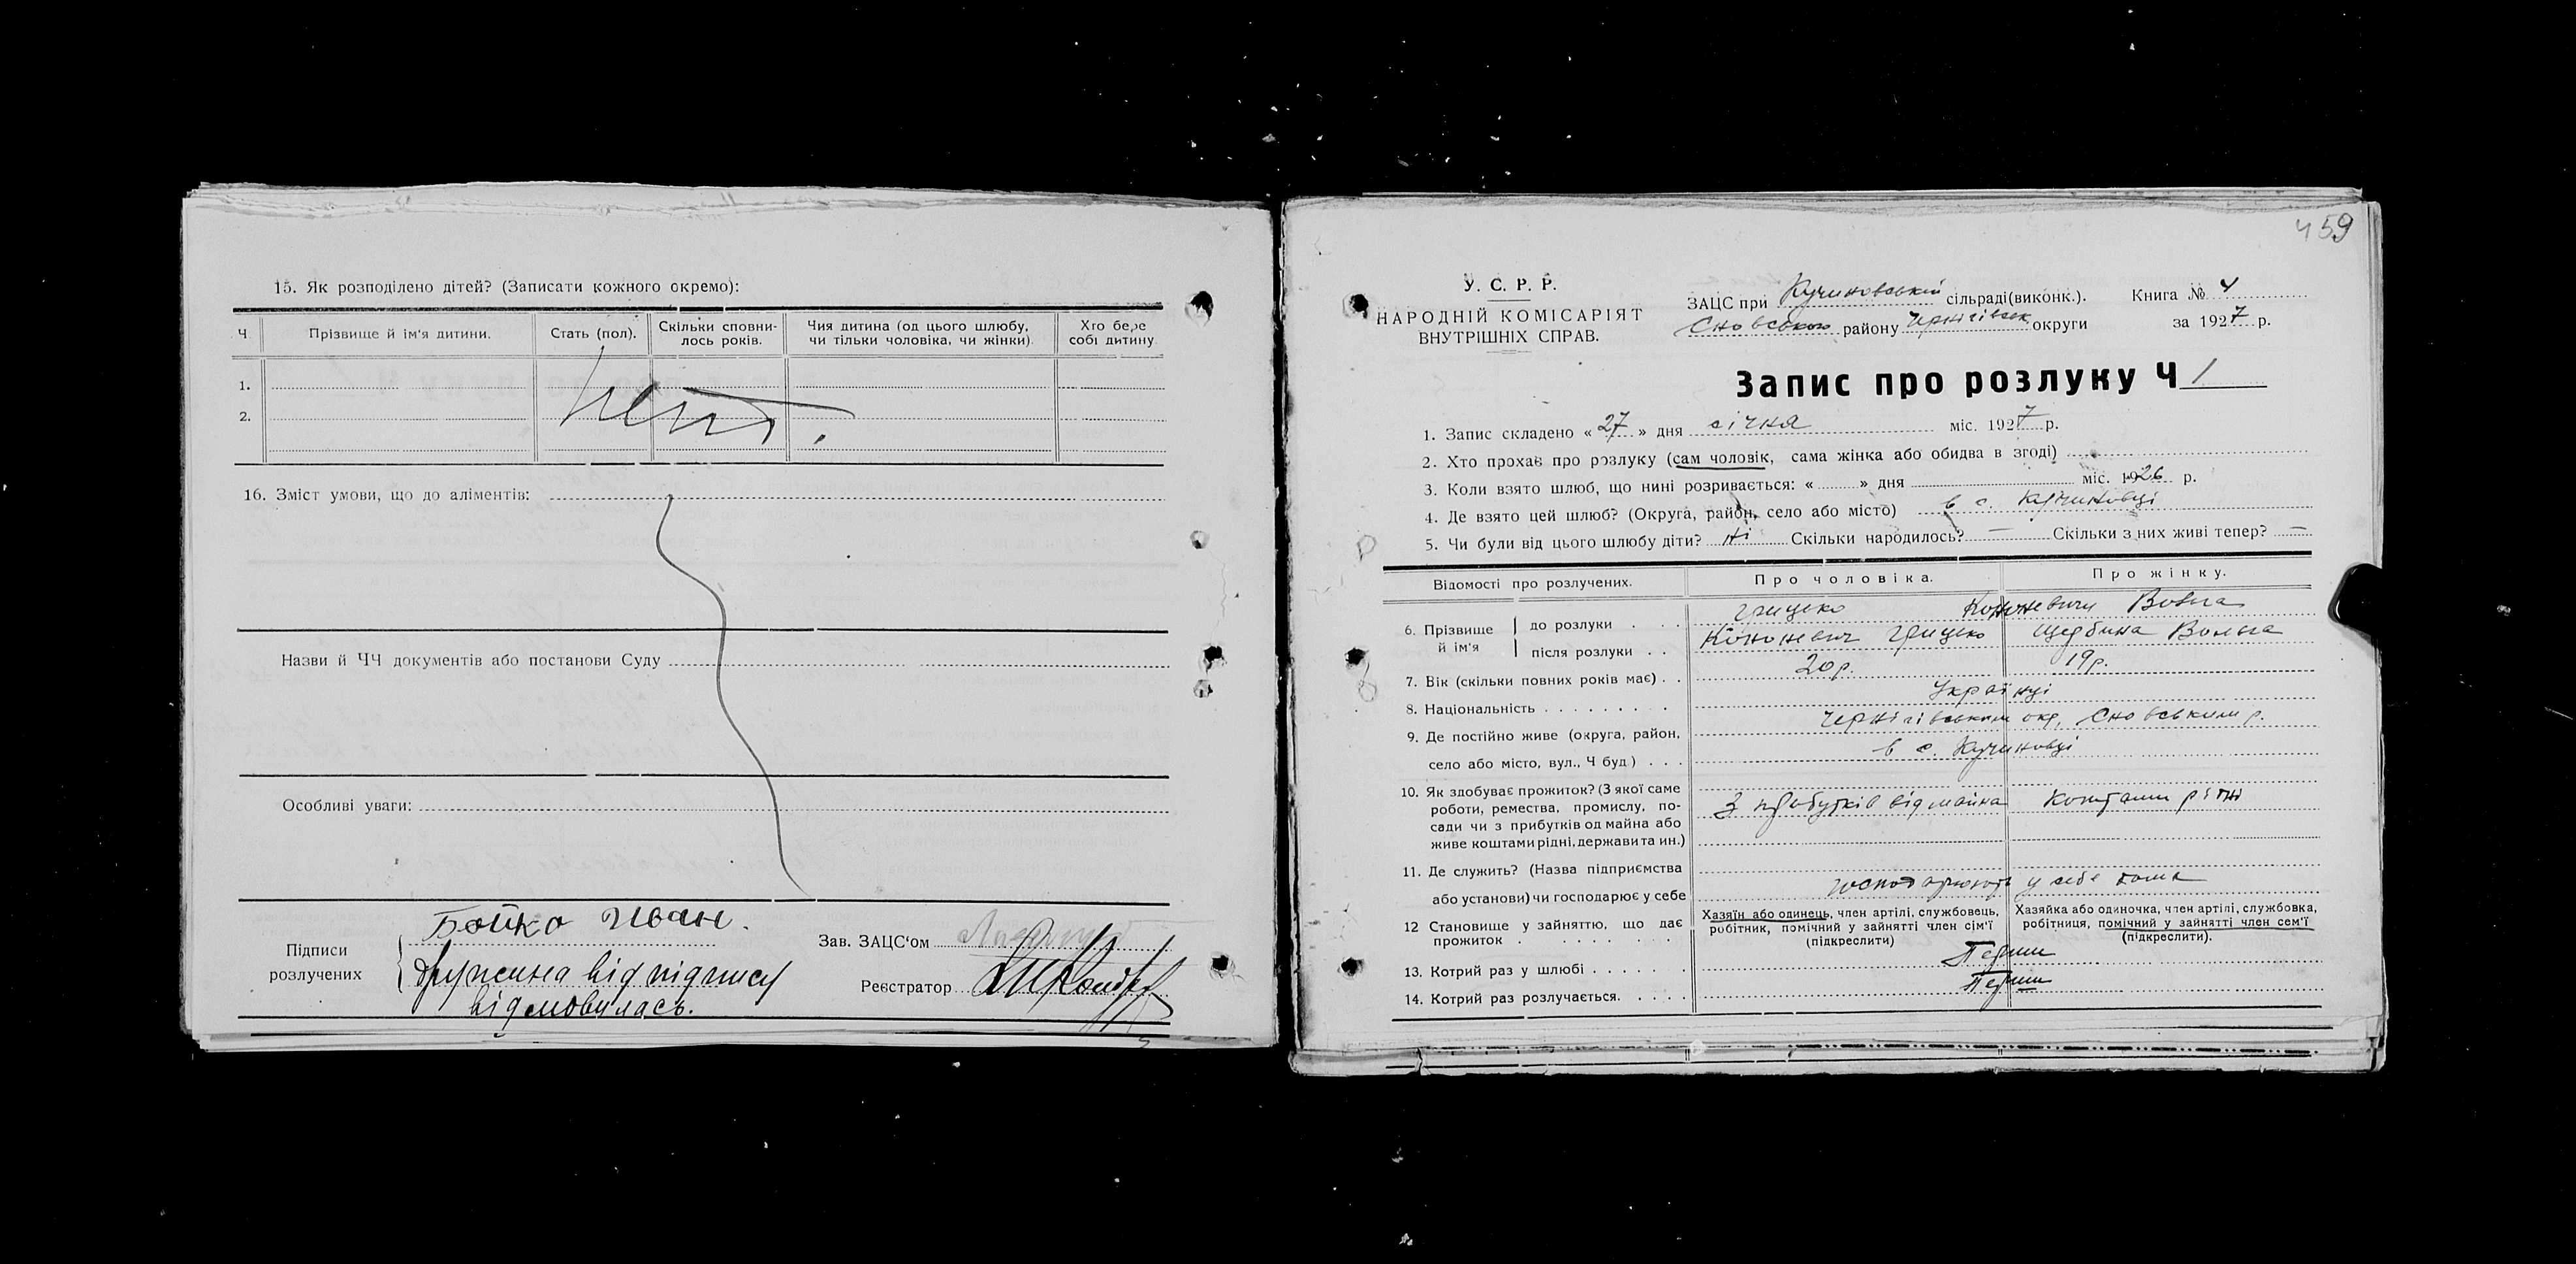 15. Як розподілено дітей? (Записати кожного окремо):
Ч Прізвище й ім'я дитини. Стать (пол). Скільки сповнилось років. Чия дитина (од цього шлюбу, чи тільки чоловіка, чи жінки) Хто бере собі дитину
1.
2.
нет.
16. Зміст умови, що до аліментів:
Назви й ЧЧ документів або постанови Суду
Особливі уваги:
Підписи розлучених
Бойко Иван.
Дружина від підпису
відмовилась.
Зав. ЗАЦС'ом
Реєстратор
459
У. С. Р. Р.
НАРОДНІЙ КОМІСАРІЯТ
ВНУТРІШНІХ СПРАВ.
ЗАЦС при Кучиновській сільраді (виконк.). Книга № 4
Сновського району Чернігівськ округи за 1927 р.
Запис про розлуку Ч 1
1. Запис складено « 27 » дня січня міс. 1927 р.
2. Хто прохає про розлуку (сам чоловік, сама жінка або обидва в згоді)
3. Коли взято шлюб, що нині розривається: « » дня міс. 1926 р.
4. Де взято цей шлюб? (Округа, район, село або місто) в с. Кучиновці
5. Чи були від цього шлюбу діти? ні Скільки народилось? — Скільки з них живі тепер? —
Відомості про розлучених. Про чоловіка. Про жінку.
6. Прізвище й ім'я
до розлуки Грицько Кононевич Вольга
після розлуки Кононевич Грицько Щербина Вольга
7. Вік (скільки повних років має) 20 р. 19 р.
8. Національність Українці
9. Де постійно живе (округа, район, Чернігівським окр, Сновським р.
село або місто, вул., Ч буд) в с. Кучиновці
10. Як здобуває прожиток? (З якої саме
роботи, ремества, промислу, по- З прибутків від майна Коштами рідні
сади чи з прибутків од майна або
живе коштами рідні, держави та ин.)
11. Де служить? (Назва підприємства
або установи) чи господарює у себе господарюють у себе дома
12 Становище у зайняттю, що дає прожиток
Хазяїн або одинець, член артілі, службовець,
робітник, помічний у зайнятті член сім'ї
(підкреслити)
Хазяйка або одиночка, член артілі, службовка,
робітниця, помічний у зайнятті член сем'ї
(підкреслити).
13. Котрий раз у шлюбі Перший
14. Котрий раз розлучається. Перший